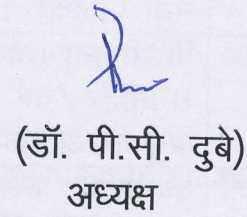 (डॉ. पी.सी. दुबे)
अध्यक्ष